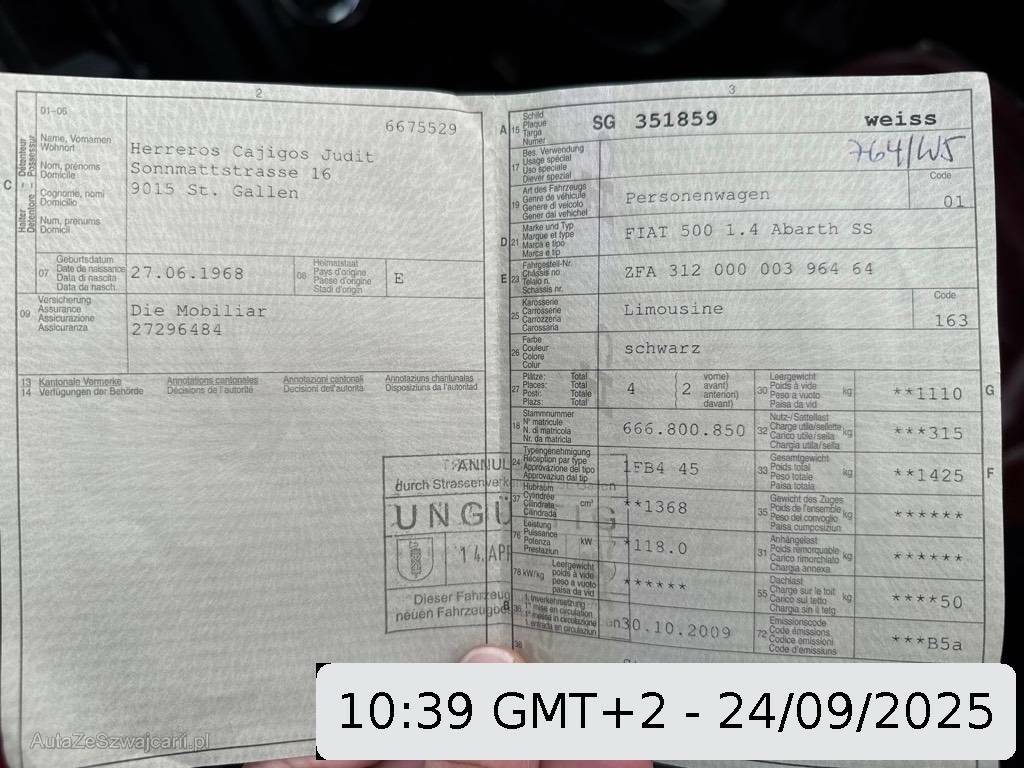 2
01-06
6675529
C
Halter Détenteur
Detentore Possessur
Name, Vornamen
Wohnort
Nom, prénoms
Domicile
Cognome, nomi
Domicilio
Num, prenums
Domicil
Herreros Cajigos Judit
Sonnmattstrasse 16
9015 St. Gallen
07
Geburtsdatum
Date de naissance
Data di nascita
Data da nasch.
27.06.1968
08
Heimatstaat
Pays d'origine
Paese d'origine
Stadi d'origin
E
09
Versicherung
Assurance
Assicurazione
Assicuranza
Die Mobiliar
27296484
13
14
Kantonale Vermerke
Verfügungen der Behörde
Annotations cantonales
Décisions de l'autorité
Annotazioni cantonali
Decisioni dell'autorità
Annotaziuns chantunalas
Disposiziuns da l'autoritad
ANNUL
durch Strassenverk
UNGÜLTIG
14.APR
Dieser Fahrzeug
neuen Fahrzeug
3
A
15
Schild
Plaque
Targa
Numer
SG 351859
weiss
764/W5
17
Bes. Verwendung
Usage spécial
Uso speciale
Diever spezial
19
Art des Fahrzeugs
Genre de véhicule
Genere di veicolo
Gener dal vehichel
Personenwagen
Code
01
D
21
Marke und Typ
Marque et type
Marca e tipo
Marca e tip
FIAT 500 1.4 Abarth SS
E
23
Fahrgestell-Nr.
Châssis no
Telaio n.
Schassis nr.
ZFA 312 000 003 964 64
25
Karosserie
Carrosserie
Carrozzeria
Carossaria
Limousine
Code
163
26
Farbe
Couleur
Colore
Colur
schwarz
27
Plätze: Total
Places: Total
Posti: Totale
Plazs: Total
4
2
vorne)
avant)
anteriori)
davant)
30
Leergewicht
Poids à vide
Peso a vuoto
Paisa da vid
kg
**1110
G
18
Stammnummer
N° matricule
N. di matricola
Nr. da matricla
666.800.850
32
Nutz-/Sattellast
Charge utile/sellette
Carico utile/sella
Chargia utila/sella
kg
***315
24
Typengenehmigung
Réception par type
Approvazione del tipo
Approvaziun dal tip
1FB4 45
33
Gesamtgewicht
Poids total
Peso totale
Paisa totala
kg
**1425
F
37
Hubraum
Cylindrée
Cilindrata
Cilindrada
cm³
**1368
35
Gewicht des Zuges
Poids de l'ensemble
Peso del convoglio
Paisa cumposiziun
kg
******
76
Leistung
Puissance
Potenza
Prestaziun
kW
*118.0
31
Anhängelast
Poids remorquable
Carico rimorchiato
Chargia annexa
kg
******
78
kW/kg
Leergewicht
poids à vide
peso a vuoto
paisa da vid
******
55
Dachlast
Charge sur le toit
Carico sul tetto
Chargia sin il tetg
kg
****50
B
36
1. Inverkehrsetzung
1re mise en circulation
1a messa in circolazione
1. entrada en circulaziun
30.10.2009
72
Emissionscode
Code émissions
Codice emissioni
Code d'emissiuns
***B5a
38
AutaZeSzwajcarii.pl
10:39 GMT+2 - 24/09/2025